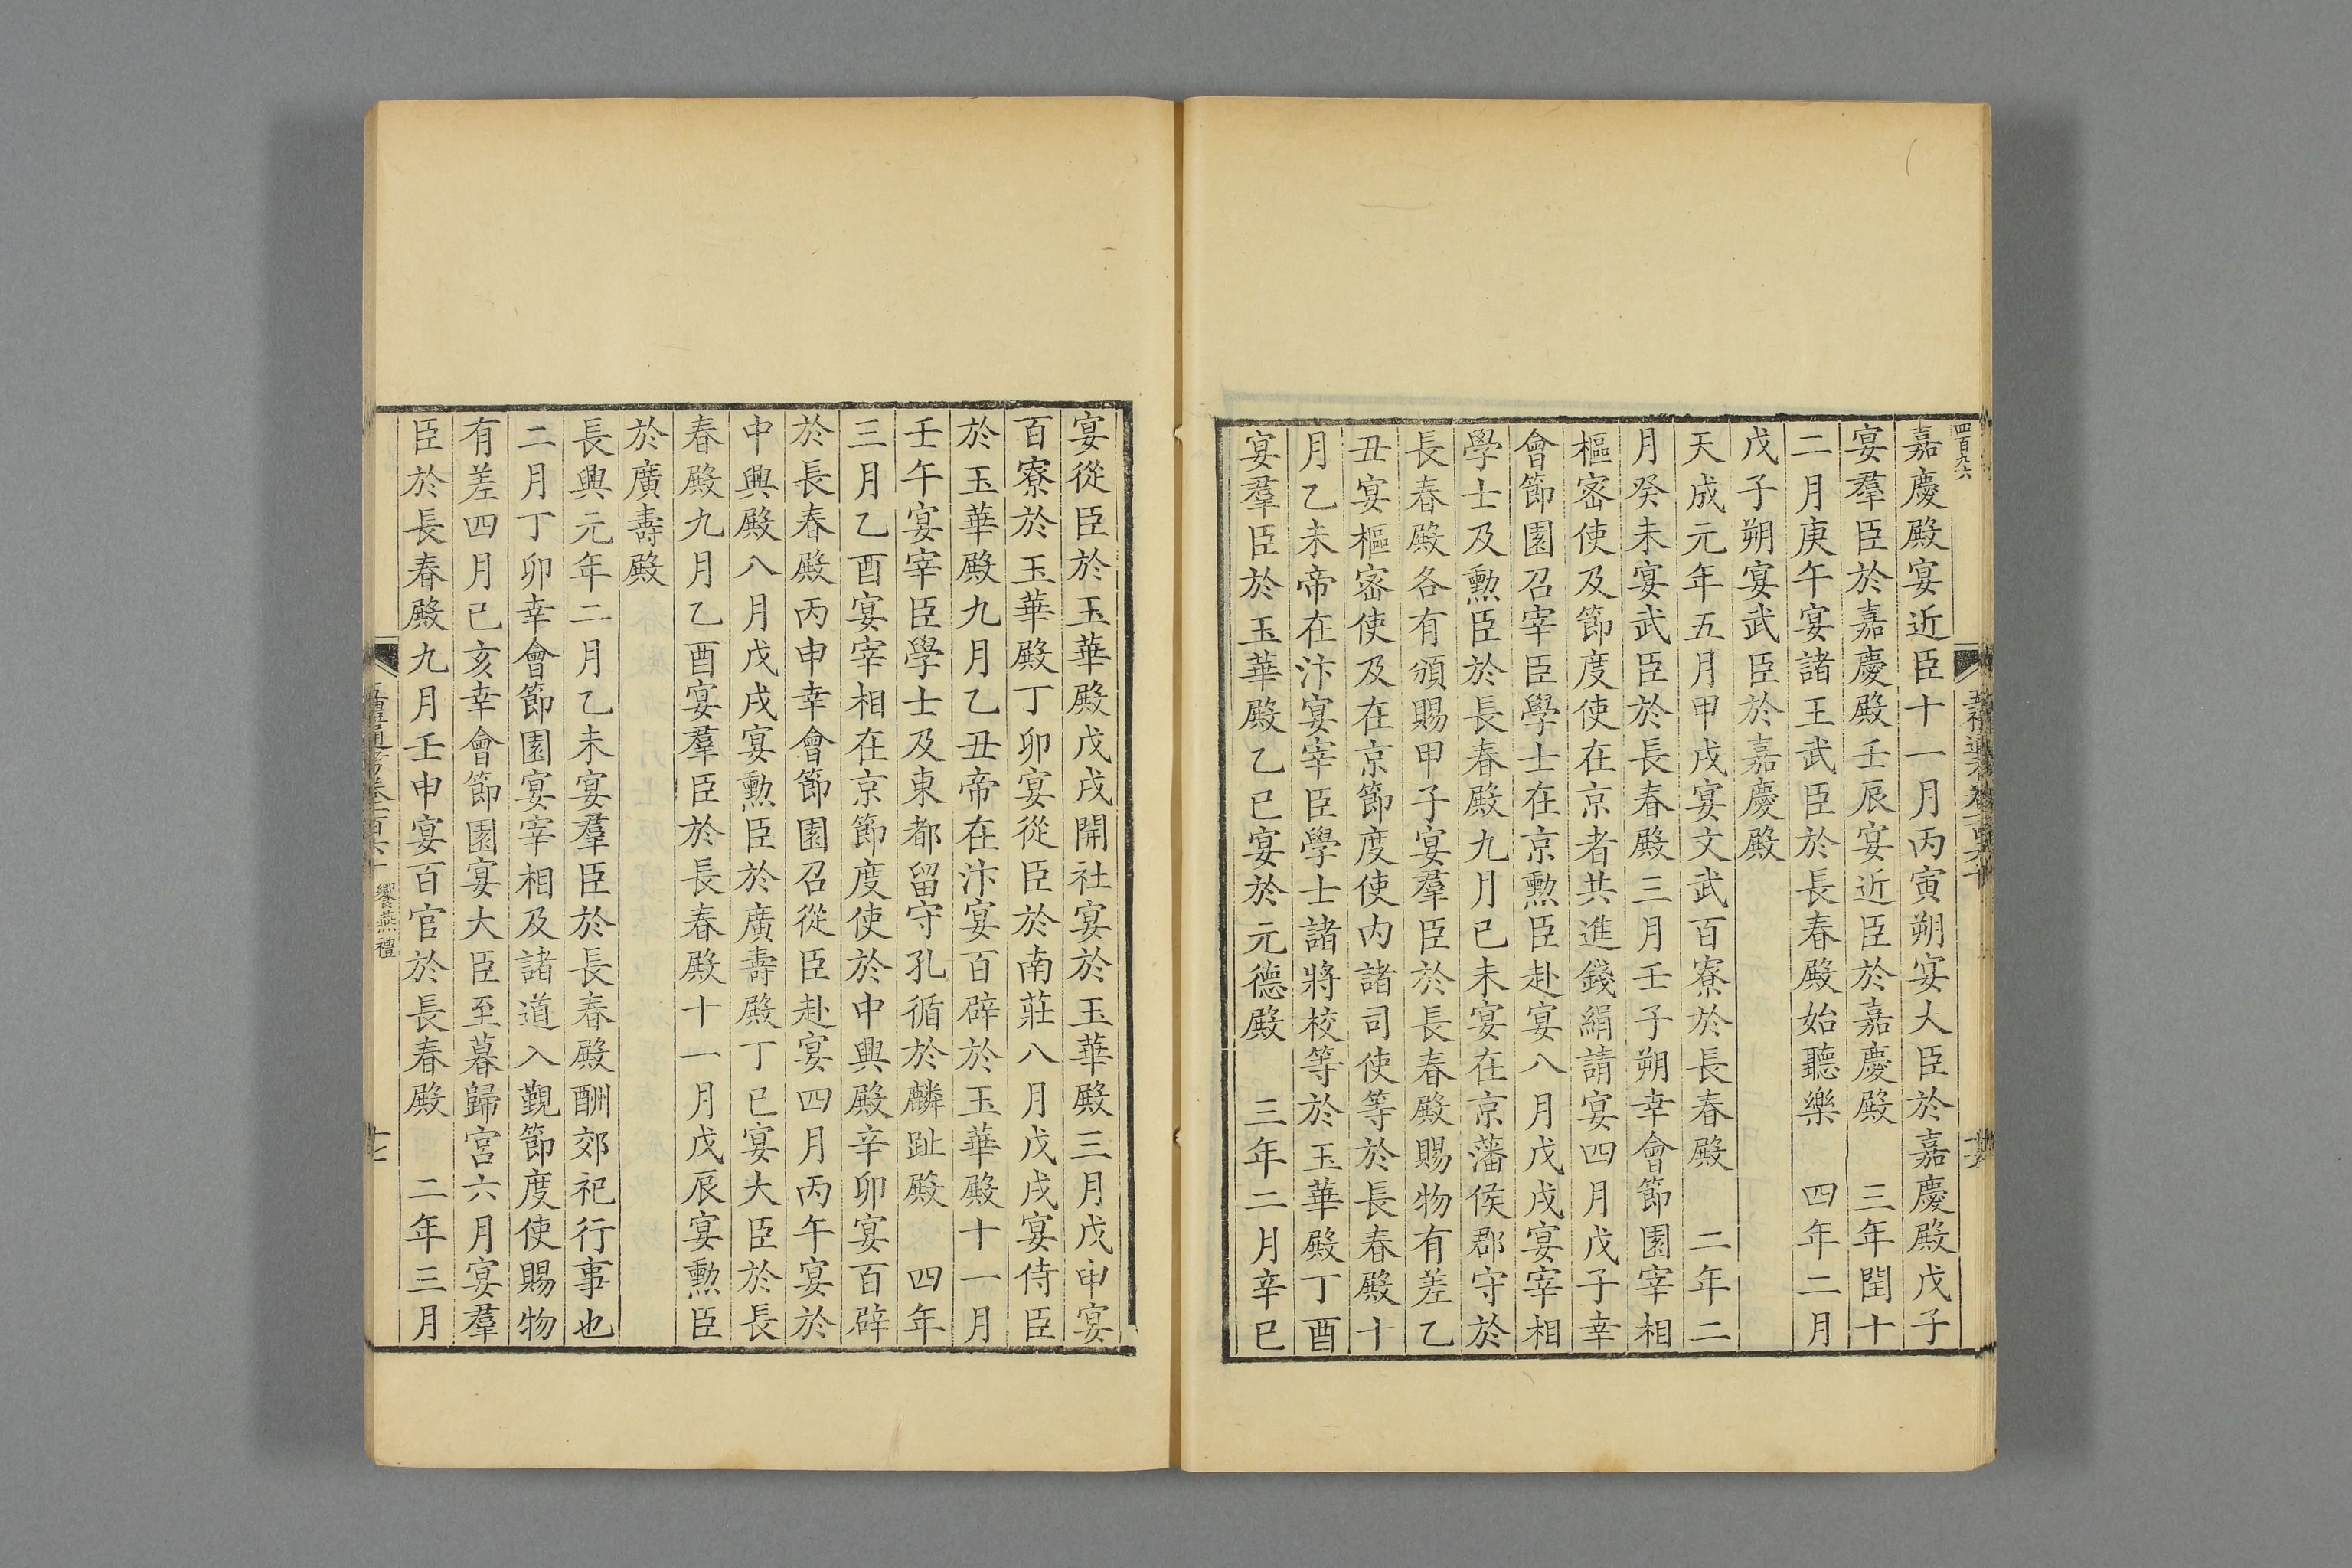 四百九六
嘉慶殿宴近臣十一月丙寅朔宴大臣於嘉慶殿戊子
宴羣臣於嘉慶殿壬辰宴近臣於嘉慶殿　三年閏十
二月庚午宴諸王武臣於長春殿始聽樂　四年二月
戊子朔宴武臣於嘉慶殿
天成元年五月甲戌宴文武百寮於長春殿　二年二
月癸未宴武臣於長春殿三月壬子朔幸會節園宰相
樞密使及節度使在京者共進錢絹請宴四月戊子幸
會節園召宰臣學士在京勲臣赴宴八月戊戌宴宰相
學士及勲臣於長春殿九月己未宴在京藩侯郡守於
長春殿各有頒賜甲子宴羣臣於長春殿賜物有差乙
丑宴樞密使及在京節度使内諸司使等於長春殿十
月乙未帝在汴宴宰臣學士諸將校等於玉華殿丁酉
宴羣臣於玉華殿乙已宴於元德殿　三年二月辛巳
宴從臣於玉華殿戊戌開社宴於玉華殿三月戊申宴
百寮於玉華殿丁卯宴從臣於南莊八月戊戌宴侍臣
於玉華殿九月乙丑帝在汴宴百辟於玉華殿十一月
壬午宴宰臣學士及東都留守孔循於麟趾殿　四年
三月乙酉宴宰相在京節度使於中興殿辛卯宴百辟
於長春殿丙申幸會節園召從臣赴宴四月丙午宴於
中興殿八月戊戌宴勲臣於廣壽殿丁已宴大臣於長
春殿九月乙酉宴羣臣於長春殿十一月戊辰宴勲臣
於廣壽殿
長興元年二月乙未宴羣臣於長春殿酬郊祀行事也
二月丁卯幸會節園宴宰相及諸道入覲節度使賜物
有差四月己亥幸會節園宴大臣至暮歸宮六月宴羣
臣於長春殿九月壬申宴百官於長春殿　二年三月
五禮通考卷一百六十　饗燕禮
十七